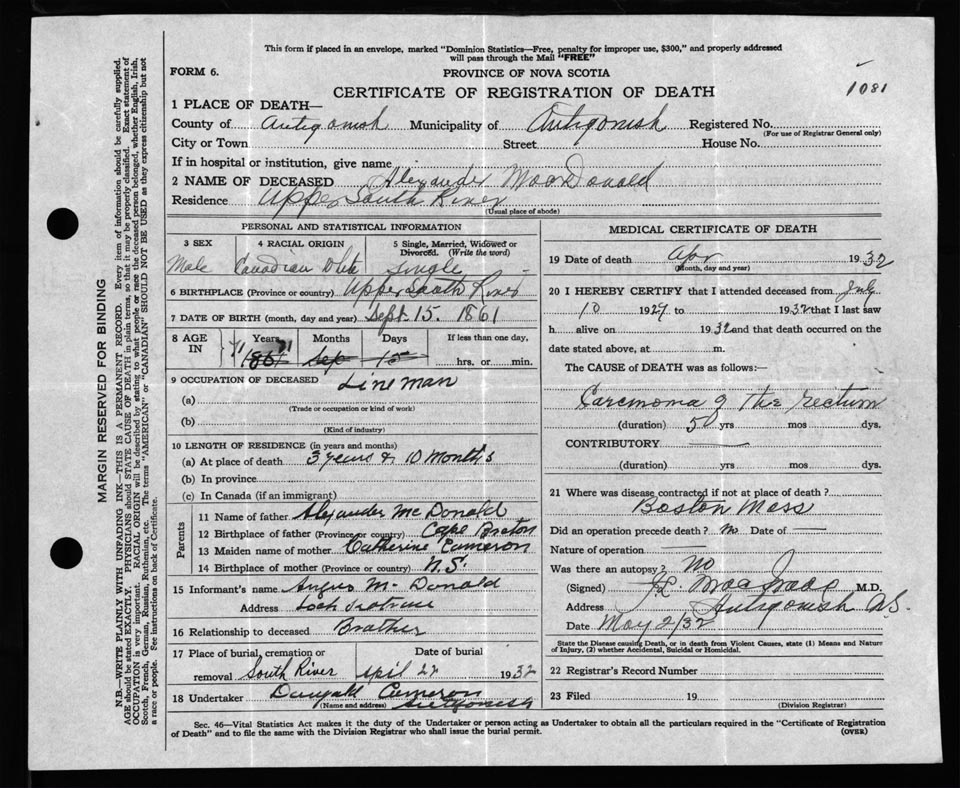 This form if placed in an envelope, marked "Dominion Statistics—Free, penalty for improper use, $300," and properly addressed
will pass through the Mail "FREE"
FORM 6.
PROVINCE OF NOVA SCOTIA
CERTIFICATE OF REGISTRATION OF DEATH
1081
1 PLACE OF DEATH—
County of Antigonish Municipality of Antigonish Registered No.
(For use of Registrar General only)
City or Town Street House No.
If in hospital or institution, give name
2 NAME OF DECEASED Alexander MacDonald
Residence Upper South River
(Usual place of abode)
PERSONAL AND STATISTICAL INFORMATION
3 SEX 4 RACIAL ORIGIN 5 Single, Married, Widowed or Divorced. (Write the word)
Male Canadian White Single
6 BIRTHPLACE (Province or country) Upper South River
7 DATE OF BIRTH (month, day and year) Sept. 15. 1861
8 AGE IN Years Months Days If less than one day,
71 71 1861 Sep 15 hrs. or min.
9 OCCUPATION OF DECEASED Lineman
(a)
(Trade or occupation or kind of work)
(b)
(Kind of industry)
10 LENGTH OF RESIDENCE (in years and months)
(a) At place of death 3 years & 10 months
(b) In province
(c) In Canada (if an immigrant)
Parents
11 Name of father Alexander McDonald
12 Birthplace of father (Province or country) Cape Breton
13 Maiden name of mother Catherine Cameron
14 Birthplace of mother (Province or country) N.S.
15 Informant's name Angus McDonald
Address Loch
16 Relationship to deceased Brother
17 Place of burial, cremation or removal Date of burial
South River April 27 1932
18 Undertaker Cameron
(Name and address) Antigonish
MEDICAL CERTIFICATE OF DEATH
19 Date of death Apr 1932
(Month, day and year)
20 I HEREBY CERTIFY that I attended deceased from July
10 1927 to 1932 that I last saw
h alive on 1932 and that death occurred on the
date stated above, at m.
The CAUSE of DEATH was as follows:—
Carcinoma of the rectum
(duration) 5 yrs mos dys.
CONTRIBUTORY
(duration) yrs mos dys.
21 Where was disease contracted if not at place of death?
Boston Mass
Did an operation precede death? no Date of
Nature of operation
Was there an autopsy? No
(Signed) M.D.
Address Antigonish N.S.
Date May 2/32
State the Disease causing Death, or in death from Violent Causes, state (1) Means and Nature
of Injury, (2) whether Accidental, Suicidal or Homicidal.
22 Registrar's Record Number
23 Filed 19
(Division Registrar)
Sec. 46—Vital Statistics Act makes it the duty of the Undertaker or person acting as Undertaker to obtain all the particulars required in the "Certificate of Registration
of Death" and to file the same with the Division Registrar who shall issue the burial permit.
(OVER)
MARGIN RESERVED FOR BINDING
N.B.—WRITE PLAINLY WITH UNFADING INK—THIS IS A PERMANENT RECORD. Every item of information should be carefully supplied.
AGE should be stated EXACTLY. PHYSICIANS should STATE CAUSE OF DEATH in plain terms, so that it may be properly classified. Exact statement of
OCCUPATION is very important. RACIAL ORIGIN will be described by stating to what people or race the deceased person belonged, whether English, Irish,
Scotch, French, German, Russian, Ruthenian, etc. The terms "AMERICAN" or "CANADIAN" SHOULD NOT BE USED as they express citizenship but not
a race or people. See instructions on back of Certificate.